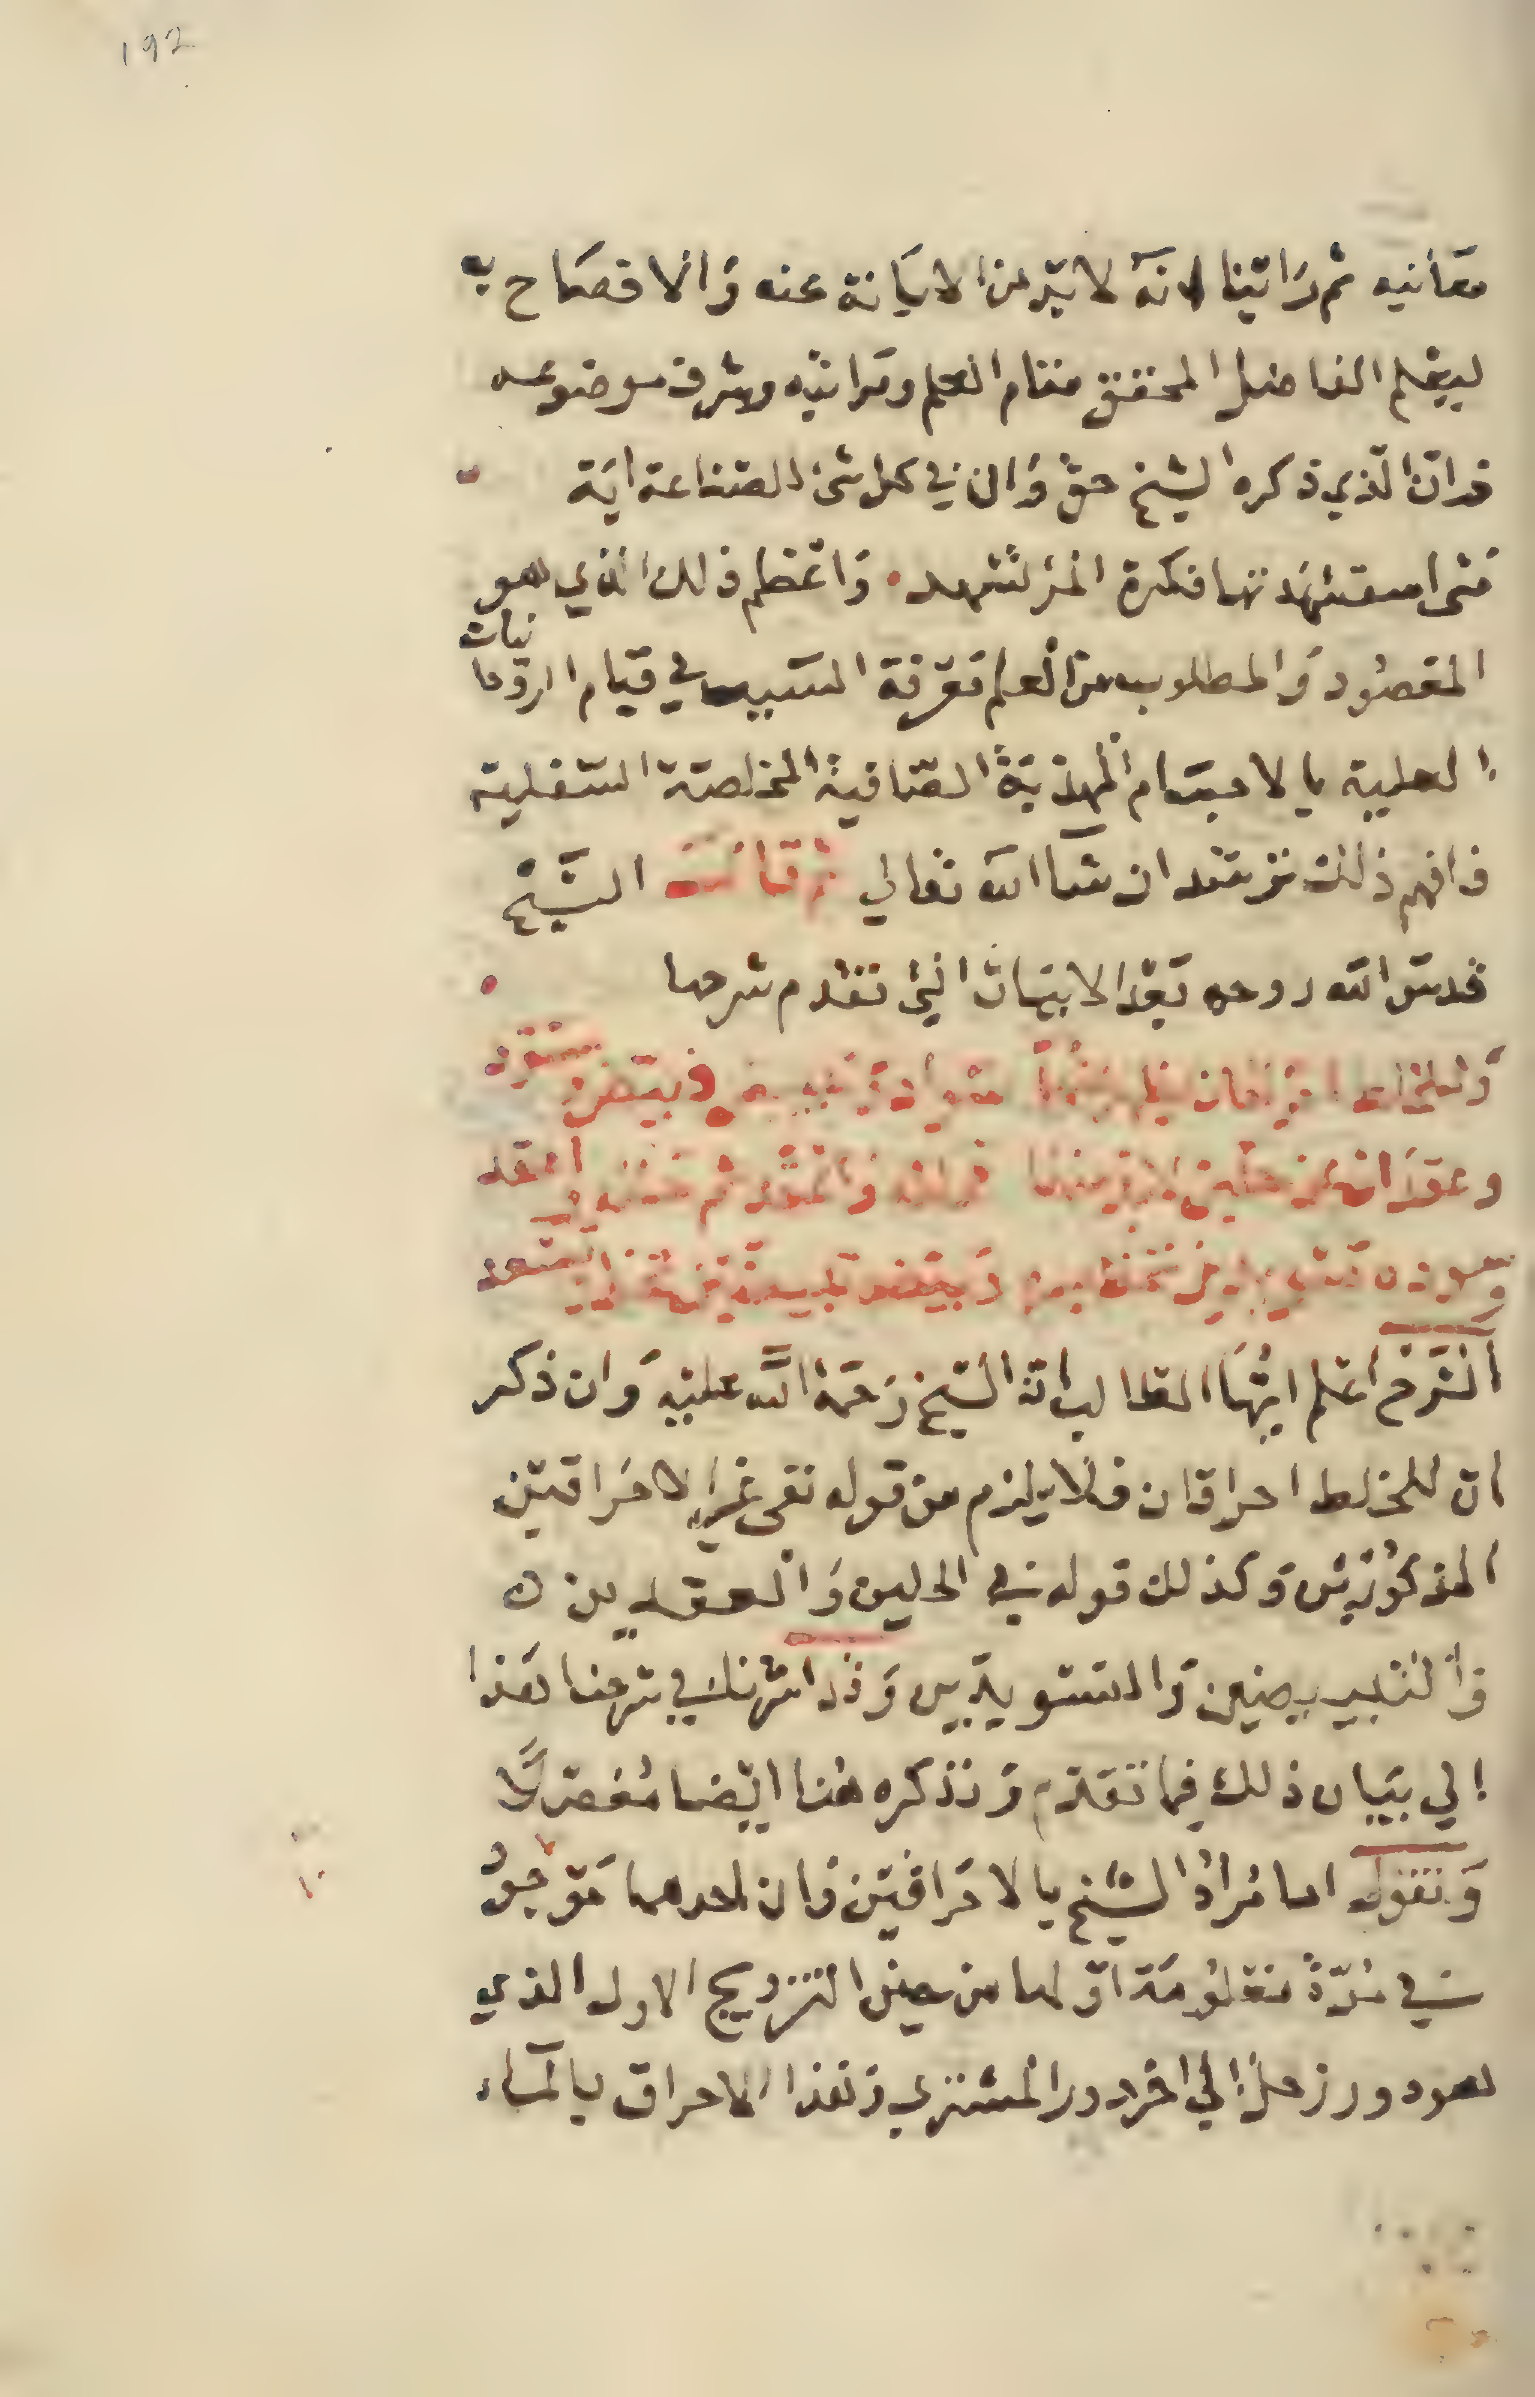 192
معانيه ثم راينا انه لا بد من الابانة عنه والافصاح به
ليعلم الفاضل المحقق مقام العلم ومراتبه وشرف موضوعه
فدان الذي ذكره الشيخ حق وان في كل شئ للصناعة اية
متى استشهدتها فكرة المرء تشهد واعظم ذلك الذي هو
المقصود والمطلوب من العلم معرفة السبب في قيام الروحانيات
العلية بالاجسام المهذبة الصافية المخلصة السفلية
فافهم ذلك ترشد ان شا الله تعالي ثم قال الشيخ
قدس الله روحه بعد الابيات التي تقدم شرحها
وللخلط احراقان
وعقدان من حلين
الشرح اعلم ايها الطالب ان الشيخ رحمة الله عليه وان ذكر
ان للخلط احراقان فلا يلزم من قوله نفى غير الاحراقين
المذكورين وكذلك قوله في الحلين والعقدين
والتبييضين والتسويدين وقد اشرنا في شرحنا هذا
الي بيان ذلك فيما تقدم ونذكره هنا ايضا مفصلا
ونقول اما مراد الشيخ بالاحراقين فان احدهما موجود
في مدة معلومة اولها من حين التزويج الاول الذي
هو دور زحل الي اخر دور المشتري وهذا الاحراق بالماء